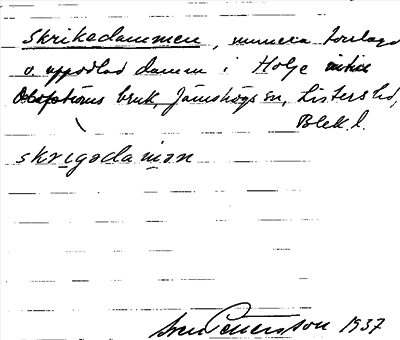 Skrikedammen, numera torrlagd
o. uppodlad damm i Holje intill
Olofströms bruk, Jämshögs sn, Listers hd,
Blek. l.
skrigadamən
Pettersson 1937